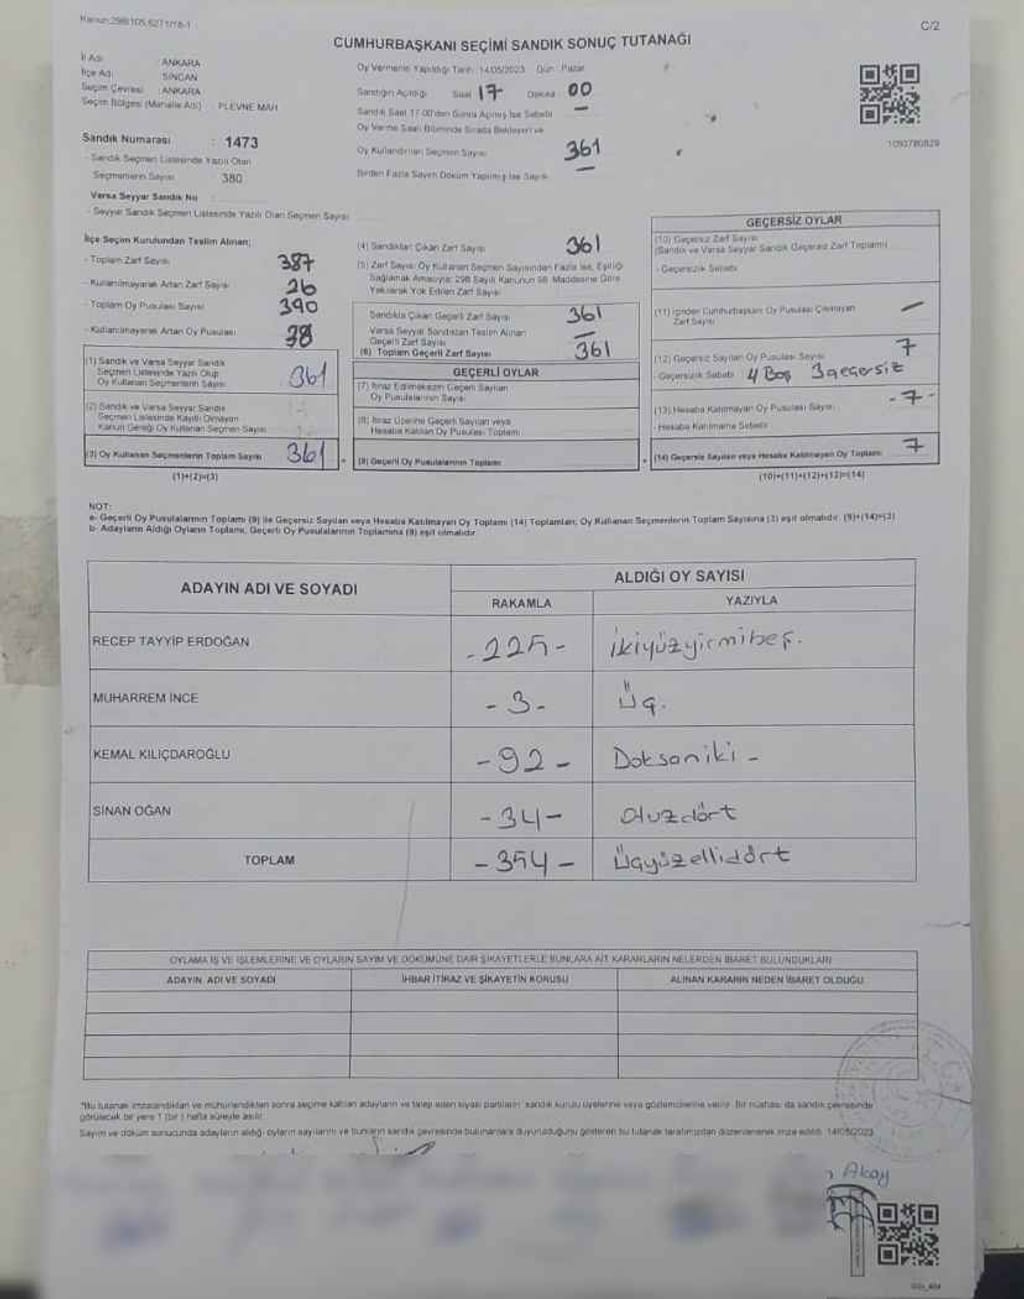 C/2
CUMHURBAŞKANI SEÇİMİ SANDIK SONUÇ TUTANAĞI
İl Adı : ANKARA
İlçe Adı : SİNCAN
Seçim Çevresi : ANKARA
Seçim Bölgesi (Mahalle Adı) : PLEVNE MAH.
Sandık Numarası : 1473
- Sandık Seçmen Listesinde Yazılı Olan
Seçmenlerin Sayısı 380
Varsa Seyyar Sandık No :
- Seyyar Sandık Seçmen Listesinde Yazılı Olan Seçmen Sayısı
Oy Vermenin Yapıldığı Tarih : 14/05/2023 Gün : Pazar
Sandığın Açıldığı Saat 17 Dakika 00
Sandık Saat 17.00'den Sonra Açılmış İse Sebebi —
Oy Verme Saati Bitiminde Sırada Bekleyen ve
Oy Kullandırılan Seçmen Sayısı 361
Birden Fazla Sayım Döküm Yapılmış İse Sayısı —
1093780829
İlçe Seçim Kurulundan Teslim Alınan;
- Toplam Zarf Sayısı 387
- Kullanılmayarak Artan Zarf Sayısı 26
- Toplam Oy Pusulası Sayısı 390
- Kullanılmayarak Artan Oy Pusulası
(1) Sandık ve Varsa Seyyar Sandık
Seçmen Listesinde Yazılı Olup
Oy Kullanan Seçmenlerin Sayısı 361
(2) Sandık ve Varsa Seyyar Sandık
Seçmen Listesinde Kayıtlı Olmayan
Kanun Gereği Oy Kullanan Seçmen Sayısı
(3) Oy Kullanan Seçmenlerin Toplam Sayısı 361
(1)+(2)=(3)
(4) Sandıktan Çıkan Zarf Sayısı 361
(5) Zarf Sayısı Oy Kullanan Seçmen Sayısından Fazla İse, Eşitliği
Sağlamak Amacıyla 298 Sayılı Kanunun 98. Maddesine Göre
Yakılarak Yok Edilen Zarf Sayısı
Sandıkta Çıkan Geçerli Zarf Sayısı 361
Varsa Seyyar Sandıktan Teslim Alınan
Geçerli Zarf Sayısı —
(6) Toplam Geçerli Zarf Sayısı 361
GEÇERLİ OYLAR
(7) İtiraz Edilmeksizin Geçerli Sayılan
Oy Pusulalarının Sayısı
(8) İtiraz Üzerine Geçerli Sayılan veya
Hesaba Katılan Oy Pusulası Toplamı
(9) Geçerli Oy Pusulalarının Toplamı
GEÇERSİZ OYLAR
(10) Geçersiz Zarf Sayısı
(Sandık ve Varsa Seyyar Sandık Geçersiz Zarf Toplamı)
- Geçersizlik Sebebi
(11) İçinden Cumhurbaşkanı Oy Pusulası Çıkmayan
Zarf Sayısı —
(12) Geçersiz Sayılan Oy Pusulası Sayısı 7
- Geçersizlik Sebebi 4 Boş 3 geçersiz
(13) Hesaba Katılmayan Oy Pusulası Sayısı -7-
- Hesaba Katılmama Sebebi
(14) Geçersiz Sayılan veya Hesaba Katılmayan Oy Toplamı 7
(10)+(11)+(12)+(13)=(14)
NOT:
a- Geçerli Oy Pusulalarının Toplamı (9) ile Geçersiz Sayılan veya Hesaba Katılmayan Oy Toplamı (14) Toplamları, Oy Kullanan Seçmenlerin Toplam Sayısına (3) eşit olmalıdır. (9)+(14)=(3)
b- Adayların Aldığı Oyların Toplamı, Geçerli Oy Pusulalarının Toplamına (9) eşit olmalıdır
ADAYIN ADI VE SOYADI ALDIĞI OY SAYISI
RAKAMLA YAZIYLA
RECEP TAYYİP ERDOĞAN -225- ikiyüzyirmibeş.
MUHARREM İNCE -3- Üç.
KEMAL KILIÇDAROĞLU -92- Doksaniki -
SİNAN OĞAN -34- Otuzdört
TOPLAM -354- Üçyüzellidört
OYLAMA İŞ VE İŞLEMLERİNE VE OYLARIN SAYIM VE DÖKÜMÜNE DAİR ŞİKAYETLERLE BUNLARA AİT KARARLARIN NELERDEN İBARET BULUNDUKLARI
ADAYIN ADI VE SOYADI İHBAR İTİRAZ VE ŞİKAYETİN KONUSU ALINAN KARARIN NEDEN İBARET OLDUĞU
"Bu tutanak imzalandıktan ve mühürlendikten sonra seçime katılan adayların ve talep eden siyasi partilerin sandık kurulu üyelerine veya gözlemcilerine verilir. Bir nüshası da sandık çevresinde
görülecek bir yere 1 (bir) hafta süreyle asılır.
Sayım ve döküm sonucunda adayların aldığı oyların sayılarını ve bunların sandık çevresinde bulunanlara duyurulduğunu gösteren bu tutanak tarafımızdan düzenlenerek imza edildi. 14/05/2023
Akay